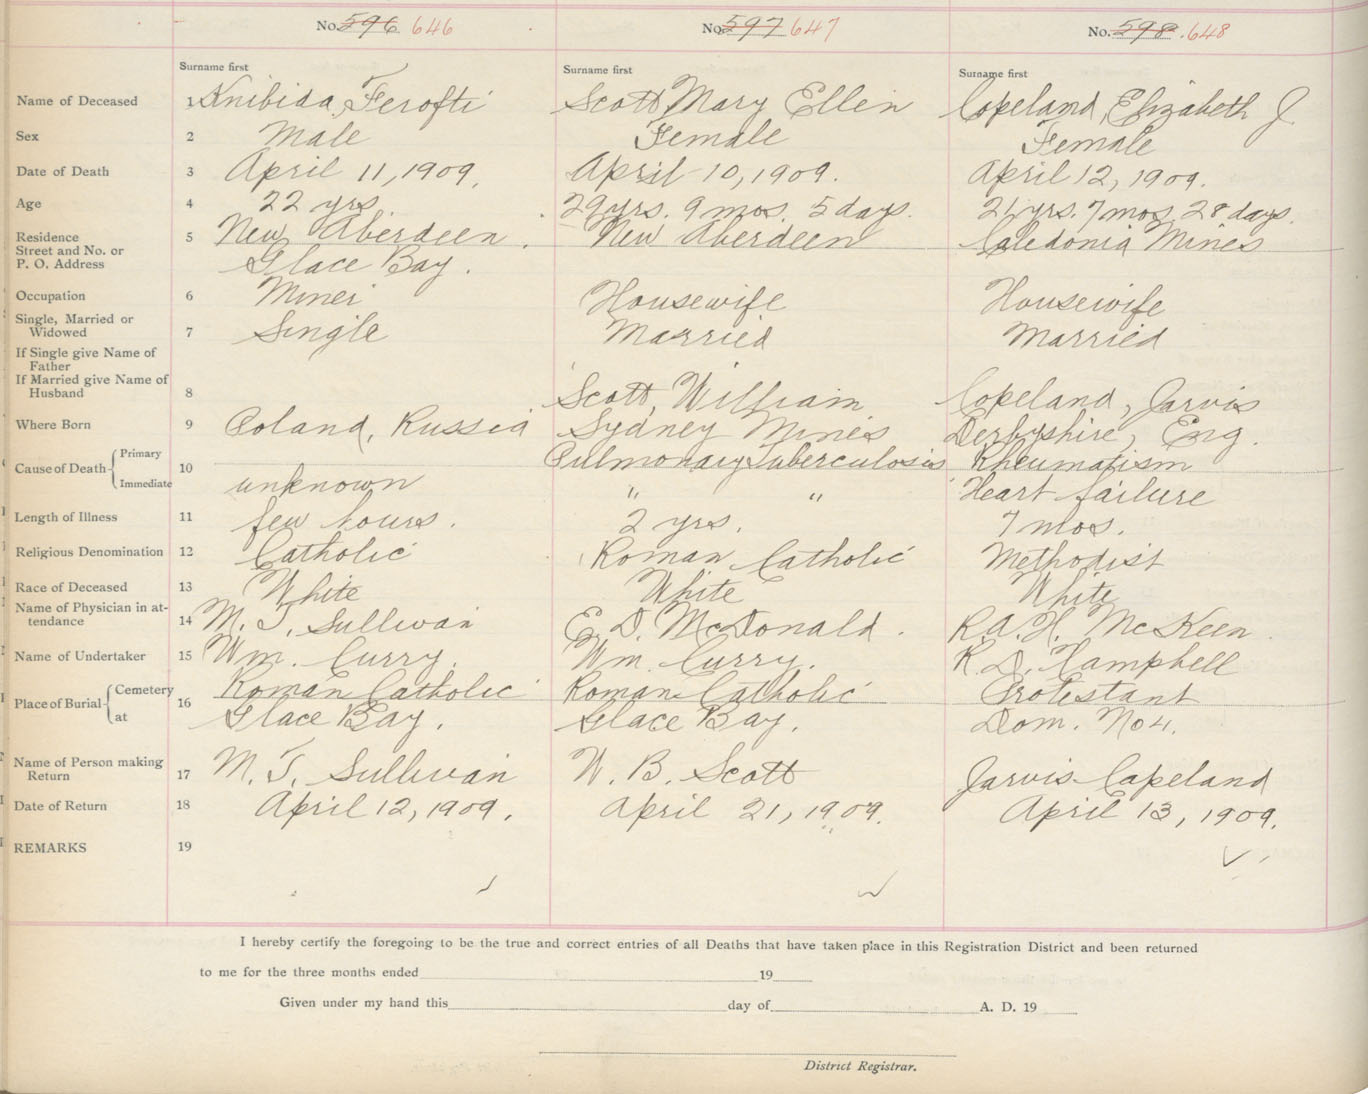 No. 596 646 No. 597 647 No. 598 648
Surname first Surname first Surname first
Name of Deceased 1 Knibida, Ferofti Scott, Mary Ellen Copeland, Elizabeth J
Sex 2 Male Female Female
Date of Death 3 April 11, 1909. April 10, 1909. April 12, 1909.
Age 4 22 yrs 29 yrs. 9 mos. 5 days. 21 yrs. 7 mos. 28 days.
Residence 5 New Aberdeen, New Aberdeen Caledonia Mines
Street and No. or
P. O. Address Glace Bay.
Occupation 6 Miner Housewife Housewife
Single, Married or
Widowed 7 Single Married Married
If Single give Name of
Father
If Married give Name of
Husband 8 Scott, William Copeland, Jarvis
Where Born 9 Poland, Russia Sydney Mines Derbyshire, Eng.
Cause of Death Primary 10 Pulmonary Tuberculosis Rheumatism
Immediate unknown " " Heart failure
Length of Illness 11 few hours. 2 yrs. 7 mos.
Religious Denomination 12 Catholic Roman Catholic Methodist
Race of Deceased 13 White White White
Name of Physician in at-
tendance 14 M. T. Sullivan E. D. McDonald. R. A. H. McKeen
Name of Undertaker 15 Wm. Curry. Wm. Curry. R. D.
Place of Burial Cemetery 16 Roman Catholic Roman Catholic Protestant
at Glace Bay. Glace Bay. Dom. No 4.
Name of Person making
Return 17 M. T. Sullivan W. B. Scott Jarvis Copeland
Date of Return 18 April 12, 1909. April 21, 1909. April 13, 1909.
REMARKS 19
I hereby certify the foregoing to be the true and correct entries of all Deaths that have taken place in this Registration District and been returned
to me for the three months ended 19
Given under my hand this day of A. D. 19
District Registrar.